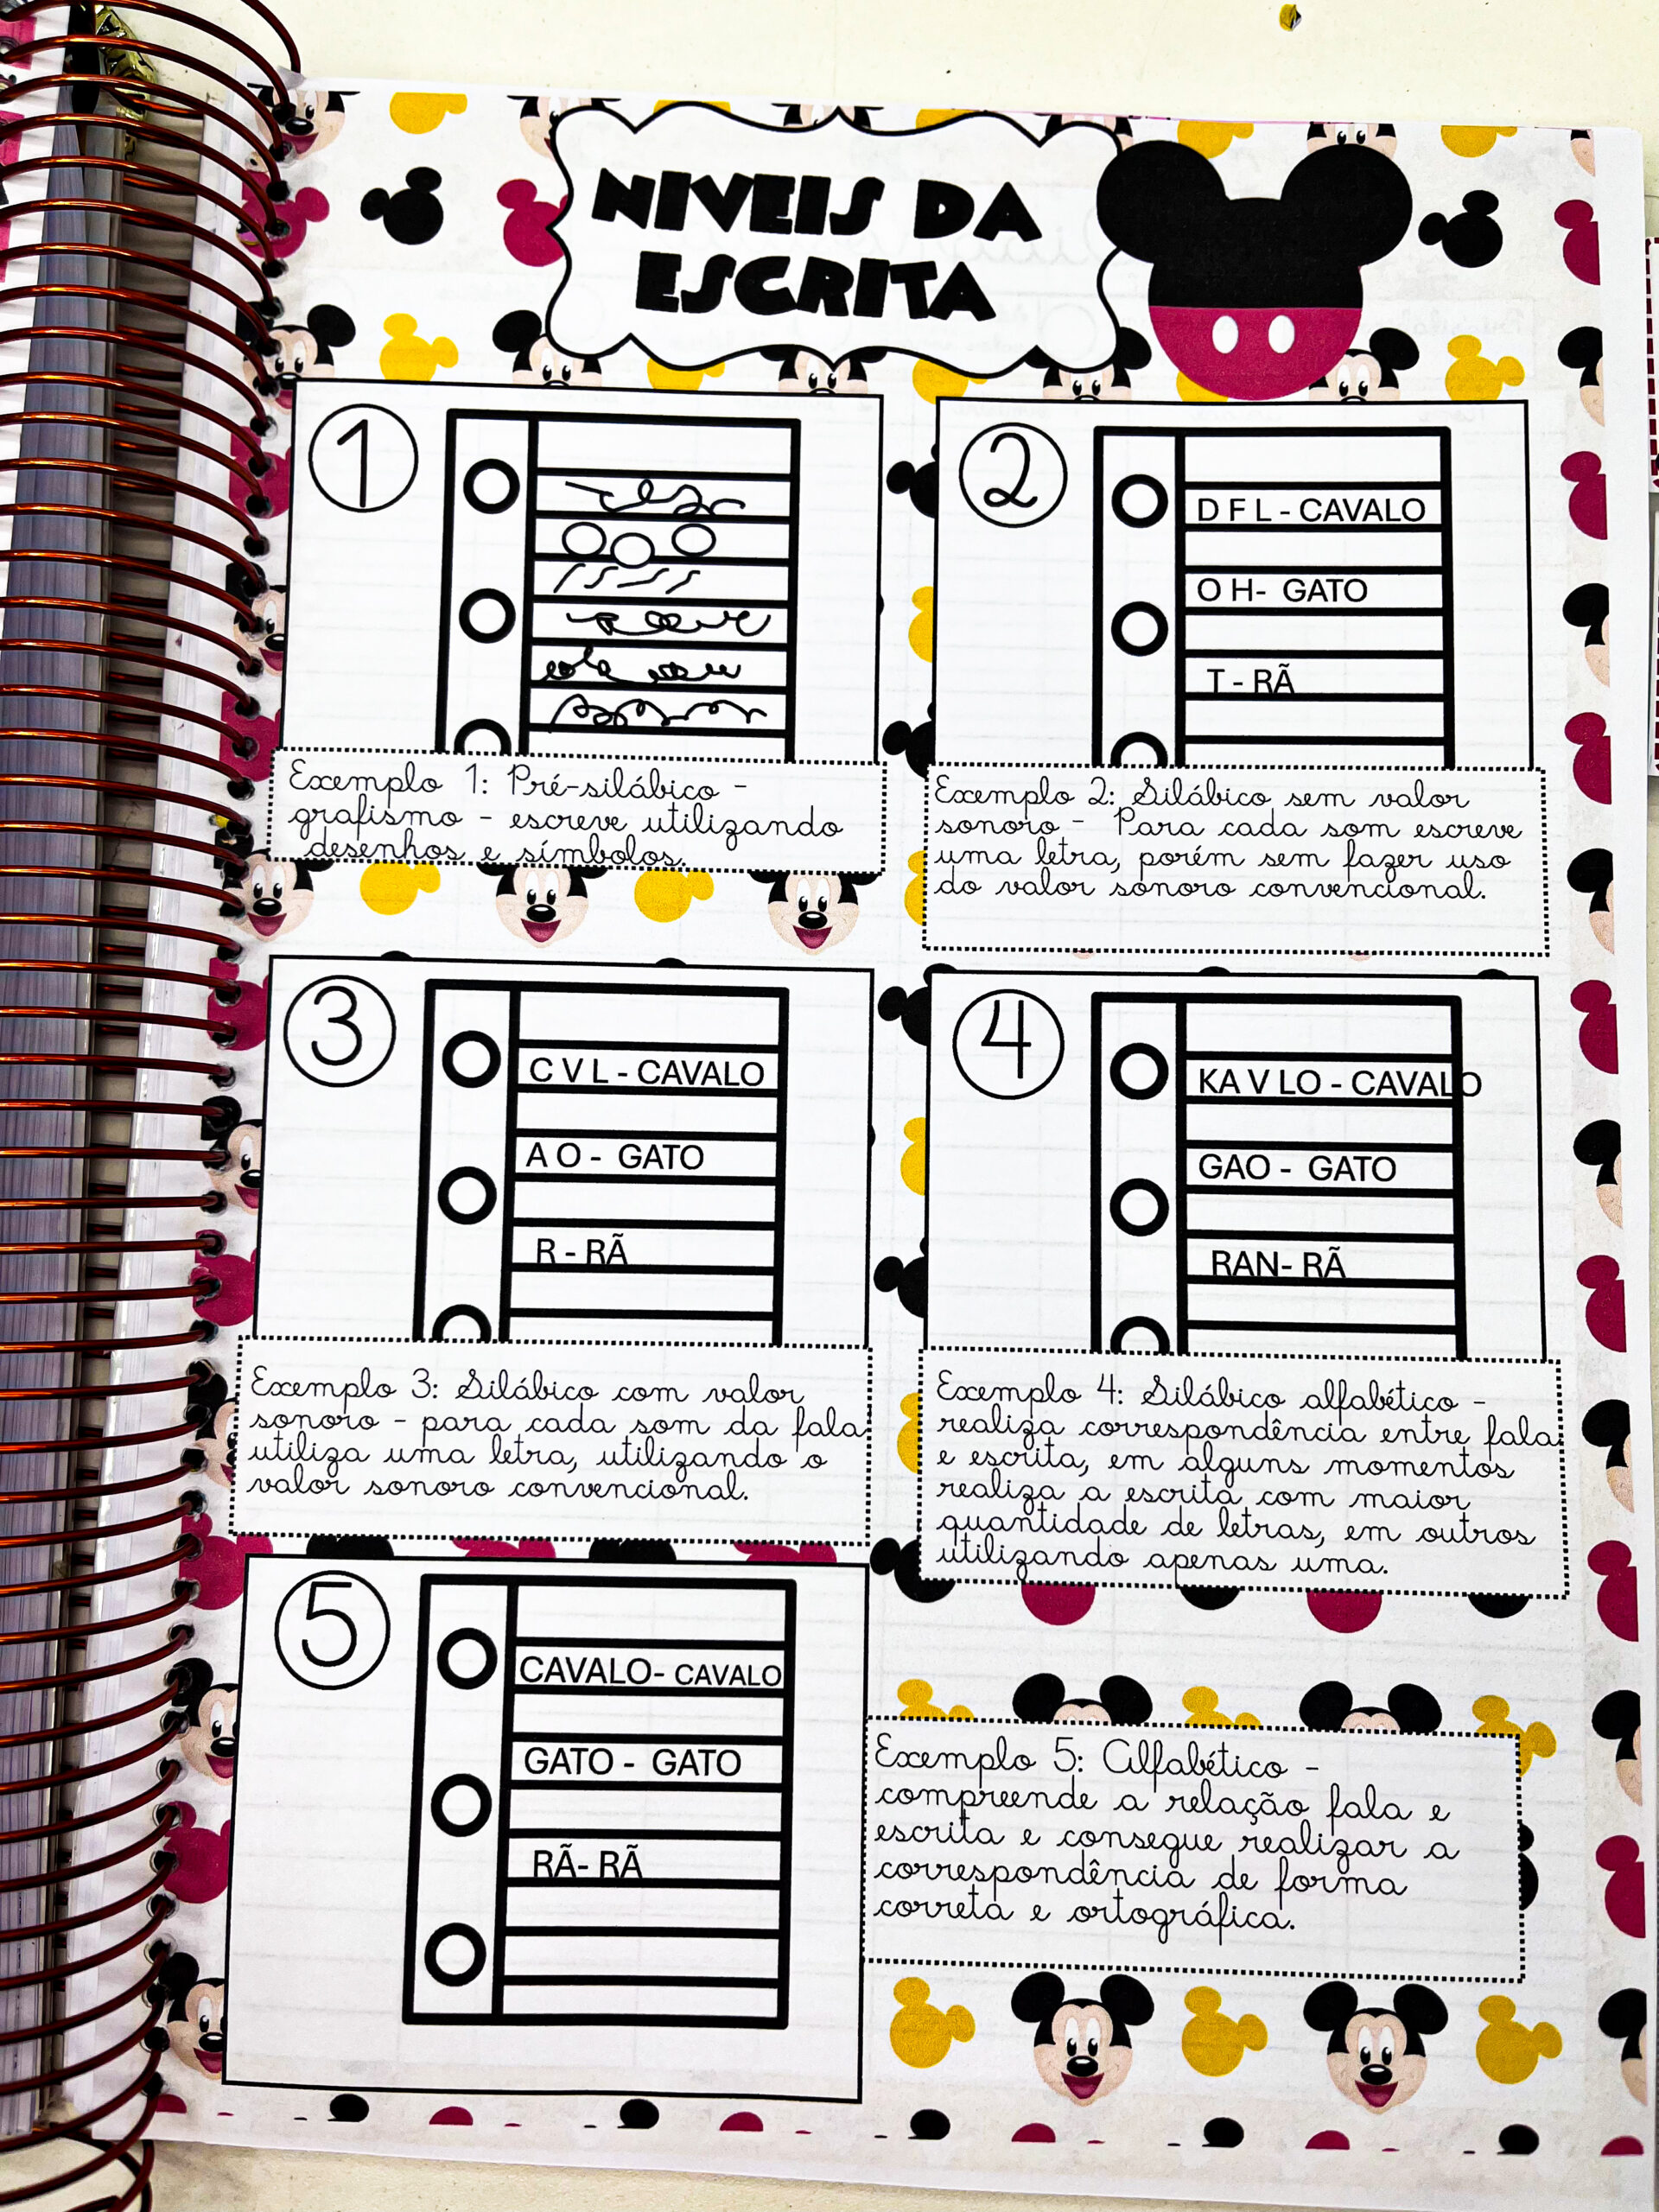 NIVEIS DA
ESCRITA
1
Exemplo 1: Pré-silábico -
grafismo - escreve utilizando
desenhos e símbolos.
2
D F L - CAVALO
O H- GATO
T - RÃ
Exemplo 2: Silábico sem valor
sonoro - Para cada som escreve
uma letra, porém sem fazer uso
do valor sonoro convencional.
3
C V L - CAVALO
A O - GATO
R - RÃ
Exemplo 3: Silábico com valor
sonoro - para cada som da fala
utiliza uma letra, utilizando o
valor sonoro convencional.
4
KA V LO - CAVALO
GAO - GATO
RAN- RÃ
Exemplo 4: Silábico alfabético -
realiza correspondência entre fala
e escrita, em alguns momentos
realiza a escrita com maior
quantidade de letras, em outros
utilizando apenas uma.
5
CAVALO- CAVALO
GATO - GATO
RÃ- RÃ
Exemplo 5: Alfabético -
compreende a relação fala e
escrita e consegue realizar a
correspondência de forma
correta e ortográfica.